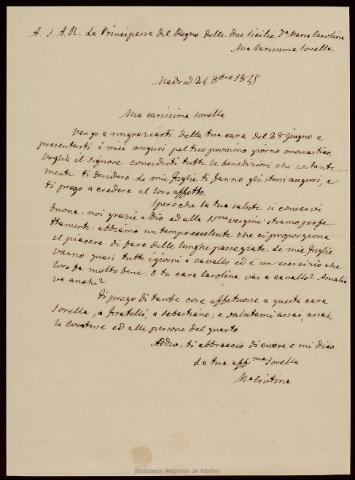 A. S. A. R. La Principessa del Regno delle due Sicilie Da Maria Carolina
Mia Carissima Sorella
Madrid 24 8bre 1848
Mia carissima Sorella
Vengo a ringraziarti della tua cara del 28 giugno e
presentarti i miei auguri pel tuo prossimo giorno onomastico
Voglia il Signore concederti tutte le benedizioni che costante
mente ti desidero. Le mie figlie ti fanno gli stessi auguri, e
ti prego a credere al loro affetto.
Spero che la tua salute si conservi
buona: noi grazie a Dio ed alla Sma vergine stiamo perfe
ttamente: abbiamo un tempo eccellente che ci proporziona
il piacere di fare delle lunghe passegiate. Le mie figlie
vanno quasi tutti i giorni a cavallo ed è un esercizio che
loro fa molto bene. E tu cara Carolina vai a cavallo? Amalia
va anche?
Ti prego di tante cose affettuose a questa cara
Sorella, a fratelli, a Sebastiano; e salutami assai, assai,
la Contesse ed alle persone del quarto
Addio: ti abbraccio di cuore e mi dico
la tua affma Sorella
Ma Cristina
Biblioteca Regional de Madrid